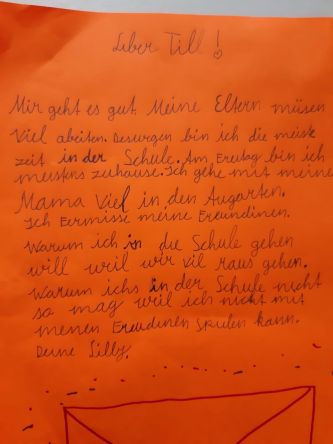 Liber Till!
Mir geht es gut. Meine Eltern müsen
Viel abeiten. Deswegen bin ich die meiste
zeit in der Schule. Am Freitag bin ich
meistens zuhause. Ich gehe mit meine
Mama Viel in den Augarten.
Ich Fermisse meine Freundinen.
Warum ich in die Schule gehen
will wril wir vil raus gehen.
Warum ichs in der Schule nicht
so mag wril ich nicht mit
menen Freudinen spilen kann.
Deine Lilly.